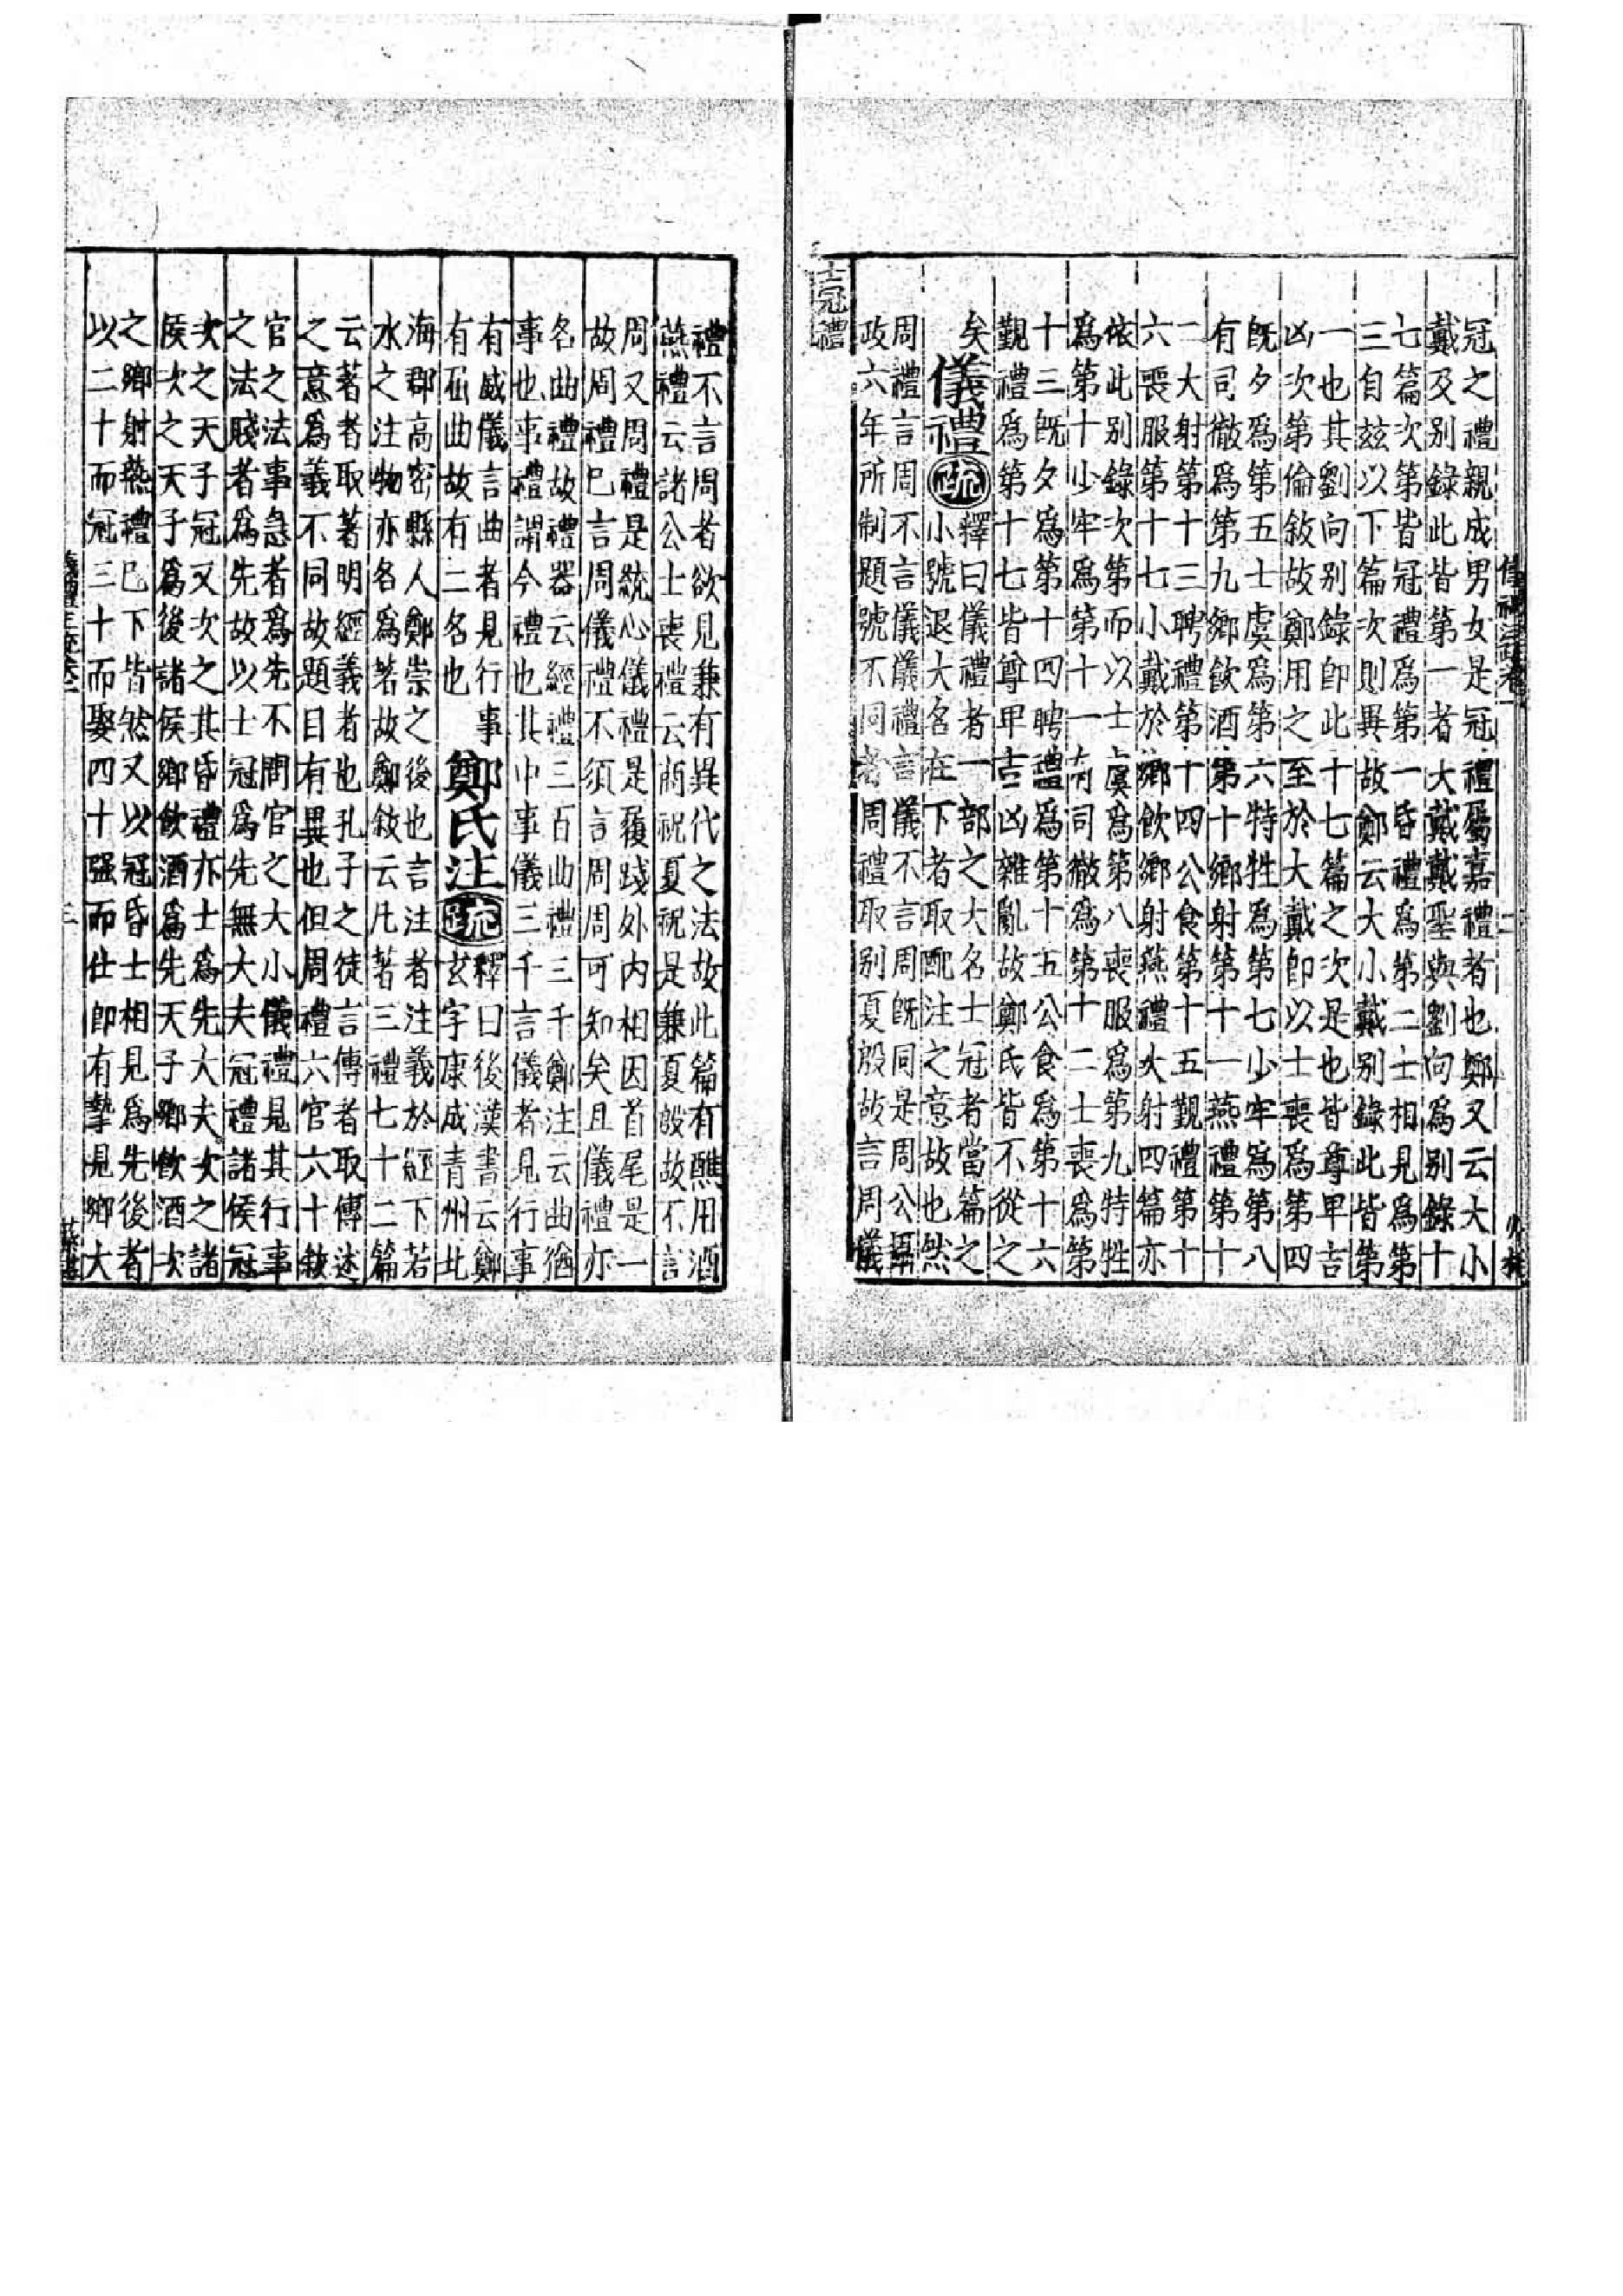 冠之禮親成男女是冠禮屬嘉禮者也鄭又云大小
戴及别錄此皆第一者大戴戴聖與劉向爲别錄十
七篇次第皆冠禮爲第一昏禮爲第二士相見爲第
三自兹以下篇次則異故鄭云大小戴别錄此皆第
一也其劉向别錄即此十七篇之次是也皆尊卑吉
凶次第倫敘故鄭用之至於大戴即以士喪爲第四
既夕爲第五士虞爲第六特牲爲第七少牢爲第八
有司徹爲第九鄉飲酒第十鄉射第十一燕禮第十
二大射第十三聘禮第十四公食第十五覲禮第十
六喪服第十七小戴於鄉飲鄉射燕禮大射四篇亦
依此别錄次第而以士虞爲第八喪服爲第九特牲
爲第十少牢爲第十一有司徹爲第十二士喪爲第
十三既夕爲第十四聘禮爲第十五公食爲第十六
覲禮爲第十七皆尊卑吉凶雜亂故鄭氏皆不從之
矣
儀禮
疏
釋曰儀禮者一部之大名士冠者當篇之
小號退大名在下者取配注之意故也然
周禮言周不言儀儀禮言儀不言周既同是周公攝
政六年所制題號不同者周禮取别夏殷故言周儀
士冠禮
禮不言周者欲見兼有異代之法故此篇有醮用酒
燕禮云諸公士喪禮云商祝夏祝是兼夏殷故不言
周又周禮是統心儀禮是履踐外内相因首尾是一
故周禮已言周儀禮不須言周周可知矣且儀禮亦
名曲禮故禮器云經禮三百曲禮三千鄭注云曲猶
事也事禮謂今禮也其中事儀三千言儀者見行事
有威儀言曲者見行事
有屈曲故有二名也
鄭氏注
疏
釋曰後漢書云鄭
玄字康成青州北
海郡高密縣人鄭崇之後也言注者注義於經下若
水之注物亦各爲著故鄭敘云凡著三禮七十二篇
云著者取著明經義者也孔子之徒言傳者取傳述
之意爲義不同故題目有異也但周禮六官六十敘
官之法事急者爲先不問官之大小儀禮見其行事
之法賤者爲先故以士冠爲先無大夫冠禮諸侯冠
次之天子冠又次之其昏禮亦士爲先大夫次之諸
侯次之天子爲後諸侯鄉飲酒爲先天子鄉飲酒次
之鄉射燕禮已下皆然又以冠昏士相見爲先後者
以二十而冠三十而娶四十強而仕即有摯見鄉大